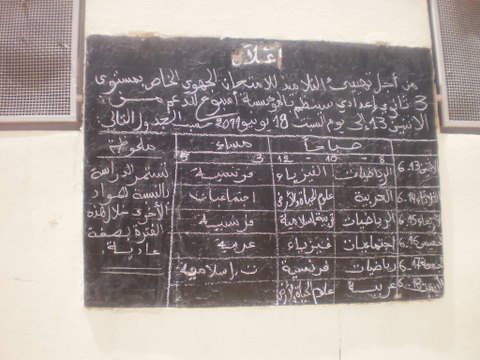 إعلان
من أجل تهييئ التلاميذ للامتحان الجهوي الخاص بمستوى
3 ثانوي إعدادي ستنظم بالمؤسسة أسبوع الدعم من
الاثنين 13 إلى يوم السبت 18 يونيو 2011 حسب الجدول التالي
صباحا مساء ملحوظة
8 10 12 3 5
الاثنين 6.13 الرياضيات الفيزياء فرنسية
الثلاثاء 6.14 العربية علوم الحياة والأرض اجتماعيات
الأربعاء 6.15 الرياضيات تربية إسلامية فرنسية
الخميس 6.16 اجتماعيات فيزياء عربية
الجمعة 6.17 رياضيات فرنسية ت.إسلامية
السبت 6.18 عربية علوم الحياة والأرض
تستمر الدراسة
بالنسبة للمواد
الأخرى خلال هذه
الفترة بصفة
عادية